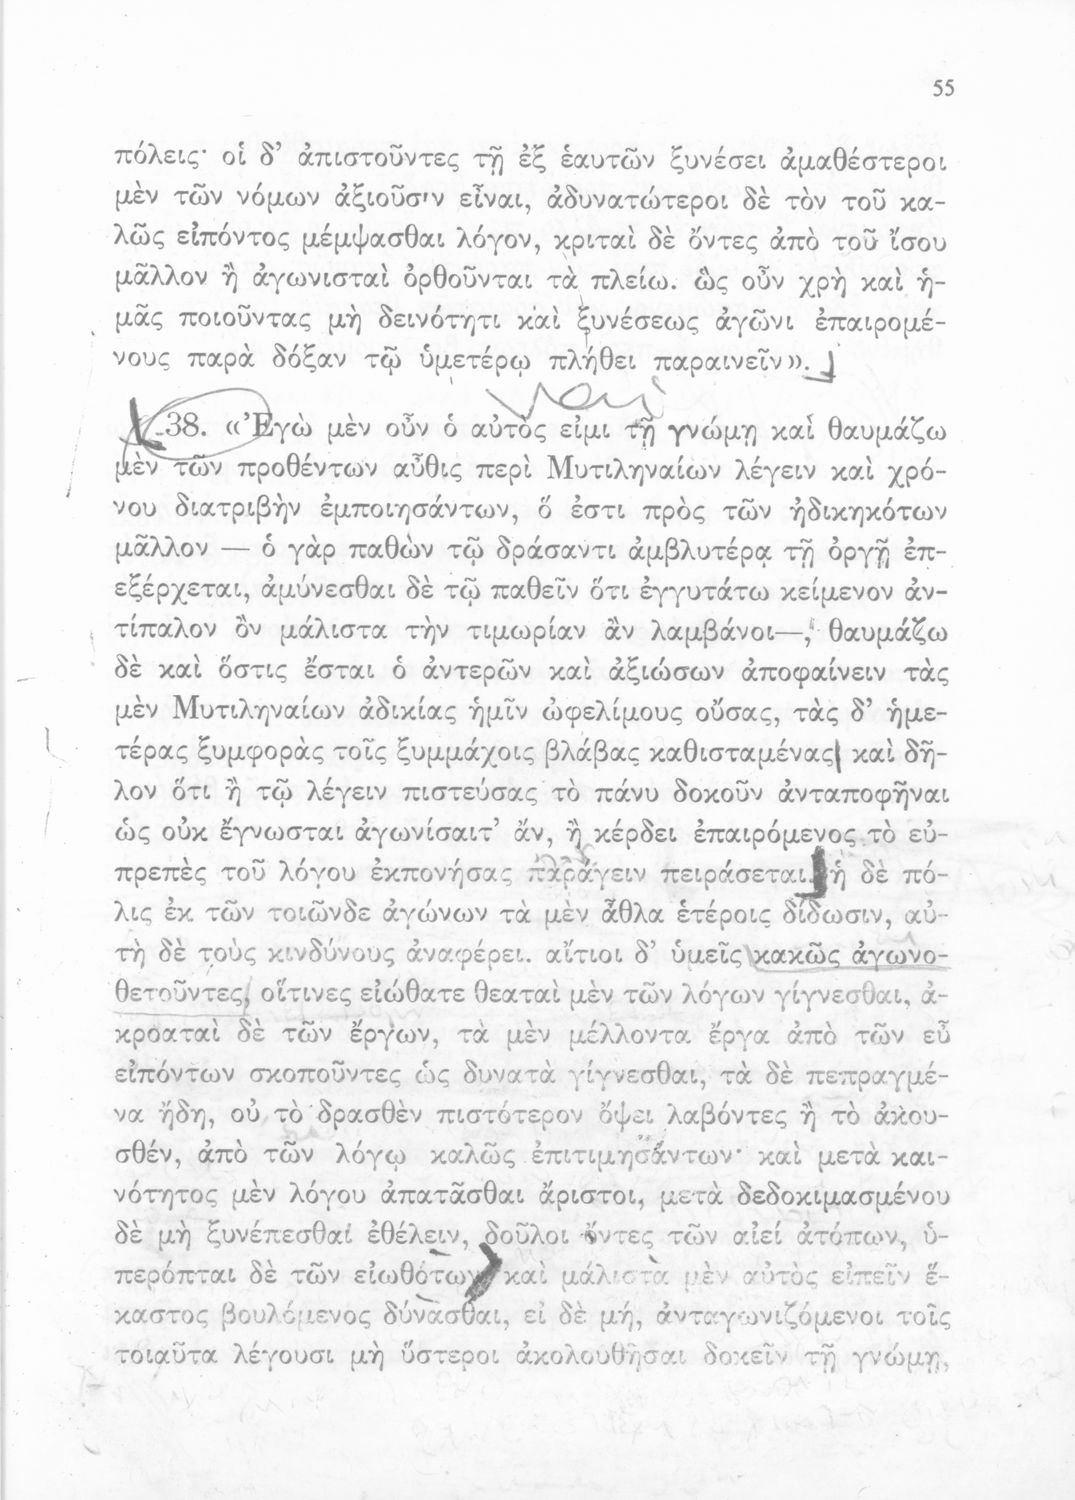 55
πόλεις· οἱ δ’ ἀπιστοῦντες τῇ ἐξ ἑαυτῶν ξυνέσει ἀμαθέστεροι
μὲν τῶν νόμων ἀξιοῦσιν εἶναι, ἀδυνατώτεροι δὲ τὸν τοῦ κα-
λῶς εἰπόντος μέμψασθαι λόγον, κριταὶ δὲ ὄντες ἀπὸ τοῦ ἴσου
μᾶλλον ἢ ἀγωνισταὶ ὀρθοῦνται τὰ πλείω. ὣς οὖν χρὴ καὶ ἡ-
μᾶς ποιοῦντας μὴ δεινότητι καὶ ξυνέσεως ἀγῶνι ἐπαιρομέ-
νους παρὰ δόξαν τῷ ὑμετέρῳ πλήθει παραινεῖν».
38. «Ἐγὼ μὲν οὖν ὁ αὐτός εἰμι τῇ γνώμῃ καὶ θαυμάζω
μὲν τῶν προθέντων αὖθις περὶ Μυτιληναίων λέγειν καὶ χρό-
νου διατριβὴν ἐμποιησάντων, ὅ ἐστι πρὸς τῶν ἠδικηκότων
μᾶλλον — ὁ γὰρ παθὼν τῷ δράσαντι ἀμβλυτέρᾳ τῇ ὀργῇ ἐπ-
εξέρχεται, ἀμύνεσθαι δὲ τῷ παθεῖν ὅτι ἐγγυτάτω κείμενον ἀν-
τίπαλον ὂν μάλιστα τὴν τιμωρίαν ἂν λαμβάνοι—, θαυμάζω
δὲ καὶ ὅστις ἔσται ὁ ἀντερῶν καὶ ἀξιώσων ἀποφαίνειν τὰς
μὲν Μυτιληναίων ἀδικίας ἡμῖν ὠφελίμους οὔσας, τὰς δ’ ἡμε-
τέρας ξυμφορὰς τοῖς ξυμμάχοις βλάβας καθισταμένας καὶ δῆ-
λον ὅτι ἢ τῷ λέγειν πιστεύσας τὸ πάνυ δοκοῦν ἀνταποφῆναι
ὡς οὐκ ἔγνωσται ἀγωνίσαιτ’ ἄν, ἢ κέρδει ἐπαιρόμενος τὸ εὐ-
πρεπὲς τοῦ λόγου ἐκπονήσας παράγειν πειράσεται. ἡ δὲ πό-
λις ἐκ τῶν τοιῶνδε ἀγώνων τὰ μὲν ἆθλα ἑτέροις δίδωσιν, αὐ-
τὴ δὲ τοὺς κινδύνους ἀναφέρει. αἴτιοι δ’ ὑμεῖς κακῶς ἀγωνο-
θετοῦντες, οἵτινες εἰώθατε θεαταὶ μὲν τῶν λόγων γίγνεσθαι, ἀ-
κροαταὶ δὲ τῶν ἔργων, τὰ μὲν μέλλοντα ἔργα ἀπὸ τῶν εὖ
εἰπόντων σκοποῦντες ὡς δυνατὰ γίγνεσθαι, τὰ δὲ πεπραγμέ-
να ἤδη, οὐ τὸ δρασθὲν πιστότερον ὄψει λαβόντες ἢ τὸ ἀκου-
σθέν, ἀπὸ τῶν λόγῳ καλῶς ἐπιτιμησάντων· καὶ μετὰ και-
νότητος μὲν λόγου ἀπατᾶσθαι ἄριστοι, μετὰ δεδοκιμασμένου
δὲ μὴ ξυνέπεσθαι ἐθέλειν, δοῦλοι ὄντες τῶν αἰεὶ ἀτόπων, ὑ-
περόπται δὲ τῶν εἰωθότων, καὶ μάλιστα μὲν αὐτὸς εἰπεῖν ἕ-
καστος βουλόμενος δύνασθαι, εἰ δὲ μή, ἀνταγωνιζόμενοι τοῖς
τοιαῦτα λέγουσι μὴ ὕστεροι ἀκολουθῆσαι δοκεῖν τῇ γνώμῃ,